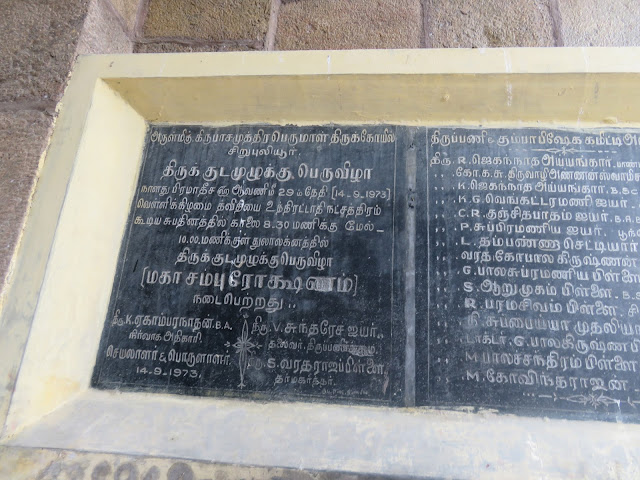 அருள்மிகு கிருபாசமுத்திர பெருமாள் திருக்கோயில்
சிறுபுலியூர்.
திருக் குடமுழுக்கு பெருவிழா
நாளது பிரமாதீச ௵ ஆவணிமீ 29 ௳ தேதி (14-9-1973)
வெள்ளிக்கிழமை துவிதியை உத்திரட்டாதி நட்சத்திரம்
கூடிய சுபதினத்தில் காலை 8.30 மணிக்கு மேல்
10.00 மணிக்குள் துலாலக்னத்தில்
திருக் குடமுழுக்குப்பெருவிழா
[மகா சம்புரோக்ஷணம்]
நடைபெற்றது..
திரு K.ஏகாம்பரநாதன் B.A.
நிர்வாக அதிகாரி
செயலாளர் & பொருளாளர்
14-9-1973.
திரு. V.சுந்தரேச ஐயர்
தலைவர், திருப்பணிக்குழு
திரு S.வரதராஜபிள்ளை,
தர்மகர்த்தா.
திருப்பணி & கும்பாபிஷேக கமிட்டி
திரு R.ஜெகந்நாத அய்யங்கார்
„ கோ.க.சு. திருவாழி அண்ணன்
„ K.ஜெகந்நாத அய்யங்கார்,
„ K.G வெங்கட்ரமணி ஐயர்
„ C.R தற்சிதபாதம் ஐயர்
„ P.சுப்பிரமணிய ஐயர்.
„ L.தம்பண்ண செட்டியார்
„ வரத கோபால கிருஷ்ணன்
„ G.பாலசுப்ரமணிய பிள்ளை
„ S.ஆறுமுகம் பிள்ளை
„ R.பரமசிவம் பிள்ளை
„ தி.சுப்பையா முதலியார்
„ டாக்டர் G.பாலகிருஷ்ண
„ M.பாலச்சந்திரம் பிள்ளை
„ M.கோவிந்தராஜன்